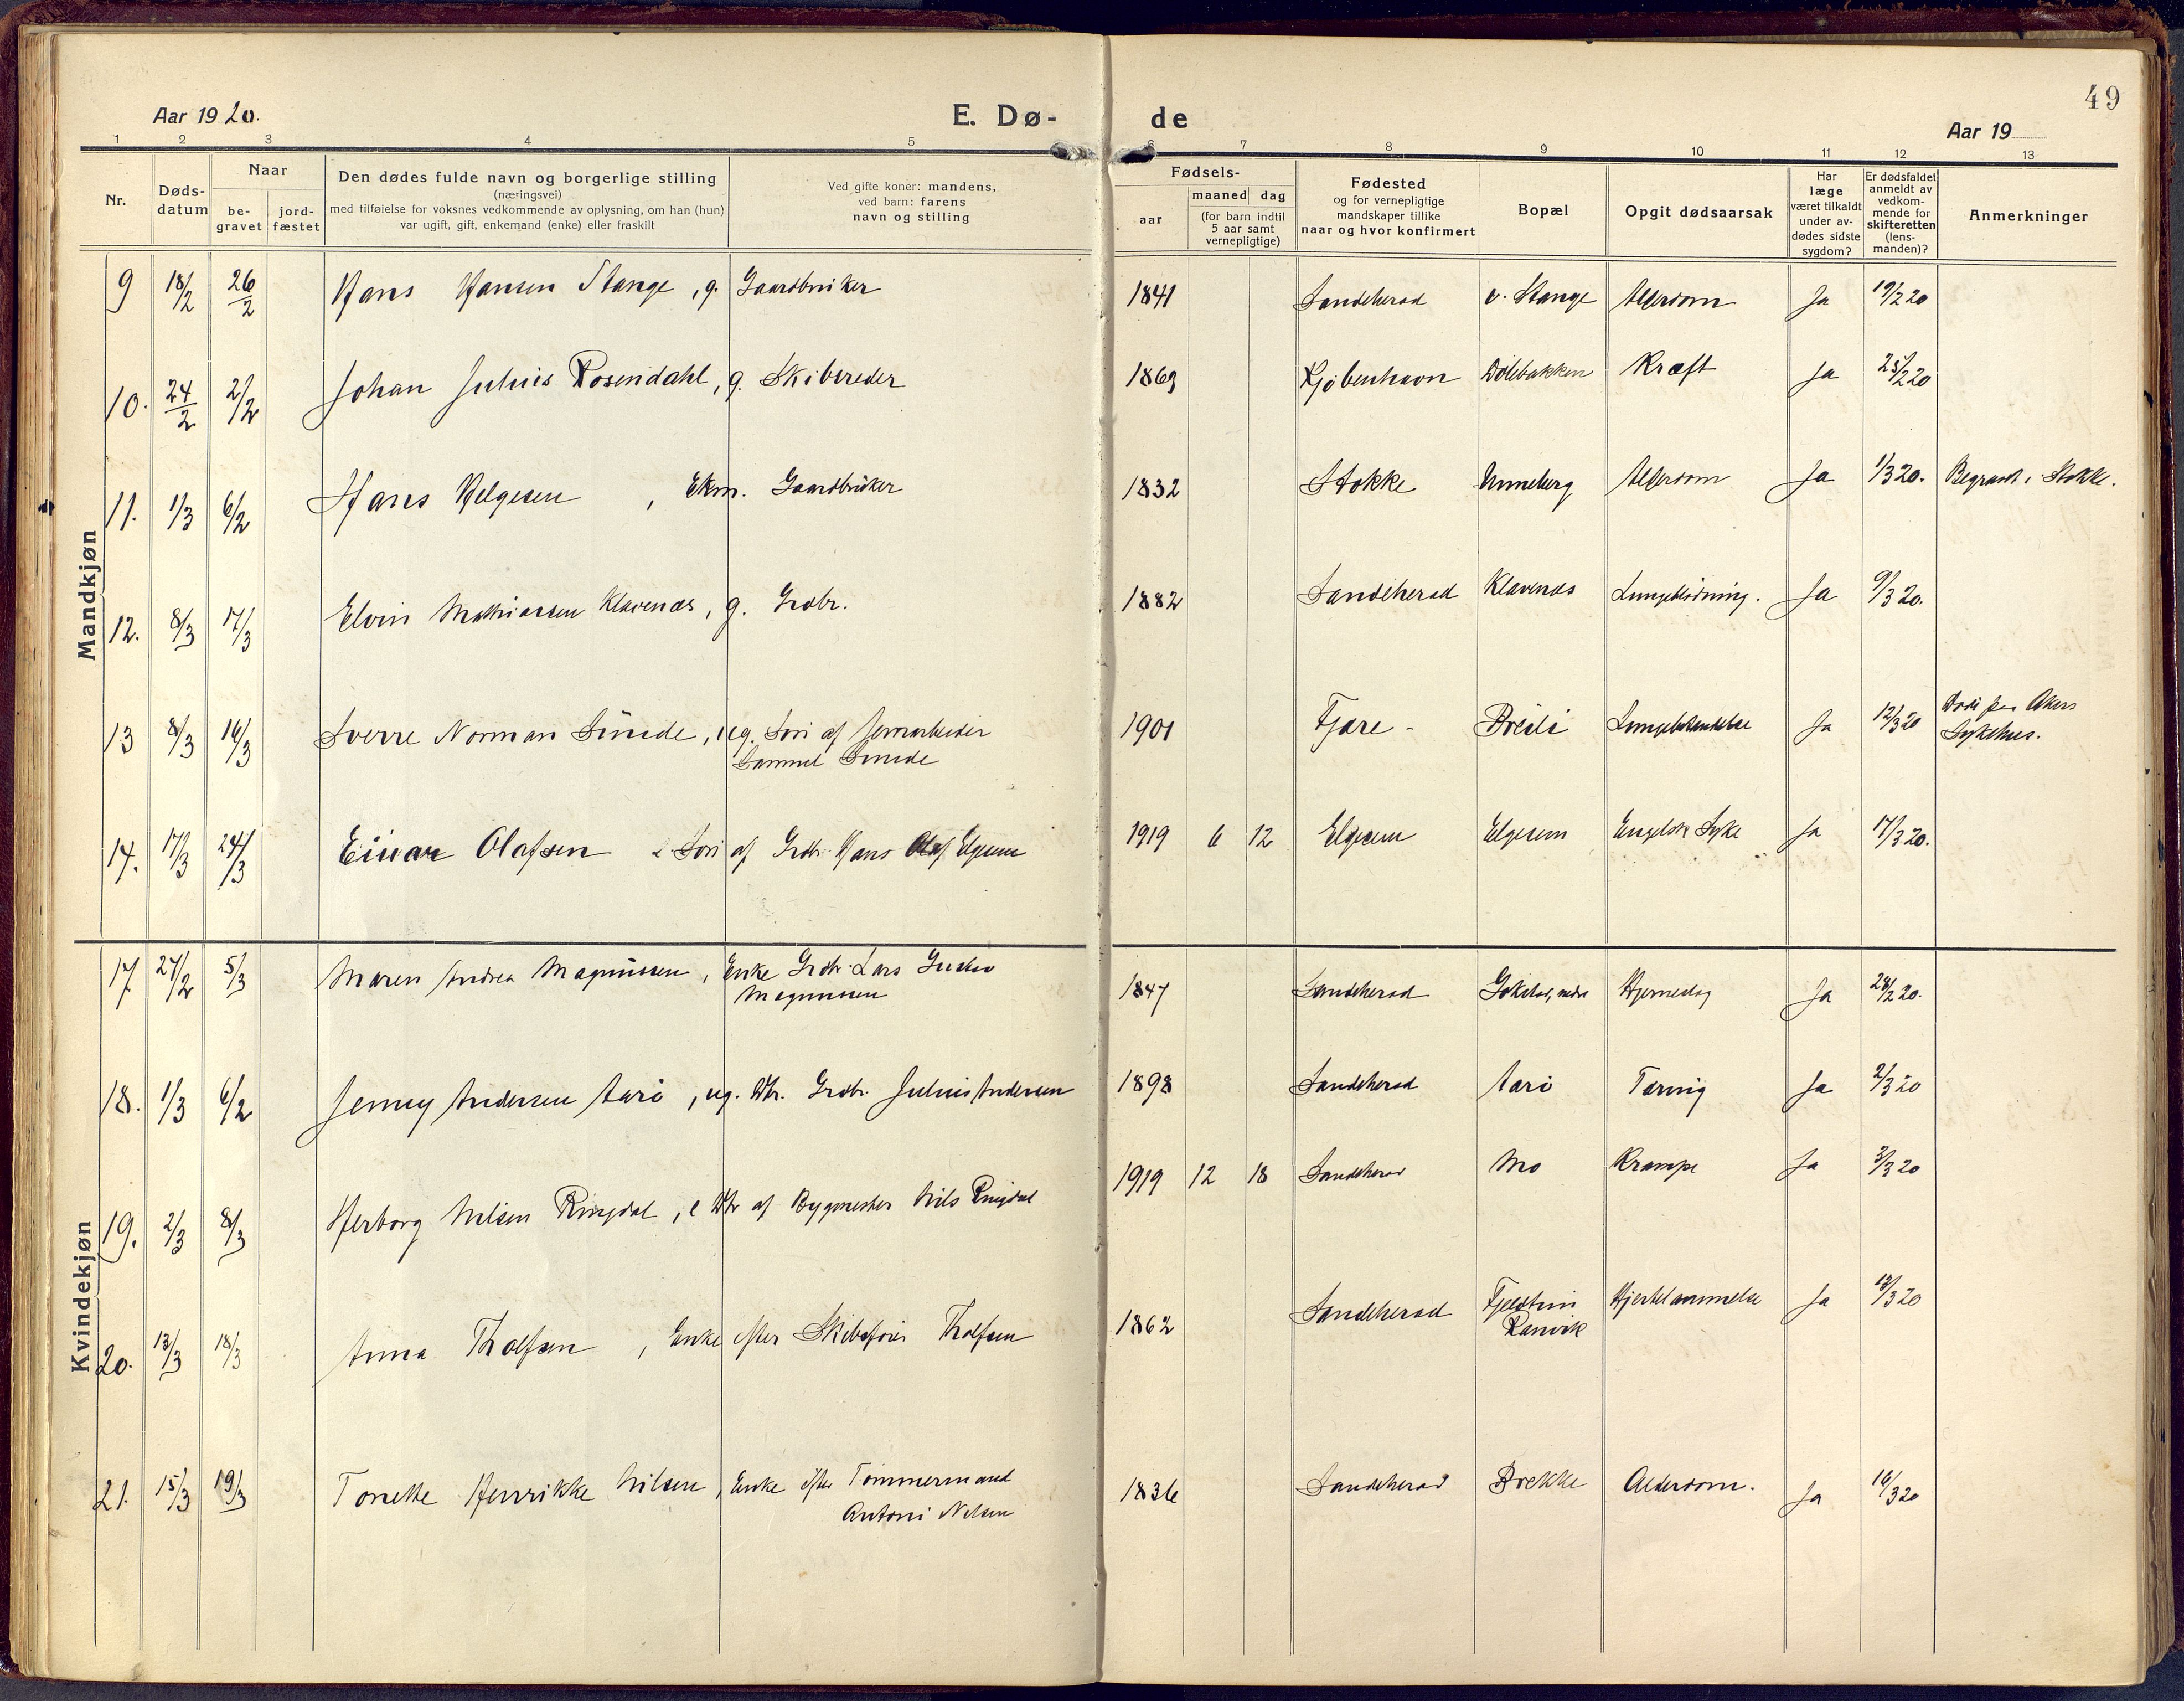 49
Aar 1920.
E. Dø- de
Aar 19
1 2 3 4 5 6 7 8 9 10 11 12 13
Nr.
Døds-
datum
Naar
be-
gravet
jord-
fæstet
Den dødes fulde navn og borgerlige stilling
(næringsvei)
med tilføielse for voksnes vedkommende av oplysning, om han (hun)
var ugift, gift, enkemand (enke) eller fraskilt
Ved gifte koner: mandens,
ved barn: farens
navn og stilling
Fødsels-
aar
maaned dag
(for barn indtil
5 aar samt
vernepligtige)
Fødested
og for vernepligtige
mandskaper tillike
naar og hvor konfirmert
Bopæl
Opgit dødsaarsak
Har
læge
været tilkaldt
under av-
dødes sidste
sygdom?
Er dødsfaldet
anmeldt av
vedkom-
mende for
skifteretten
(lens-
manden)?
Anmerkninger
Mandkjøn
9 18/2 26/2 Hans Hansen Stange, g. Gaardbruker 1841 Sandeherad v. Stange Alderdom Ja 19/2 20
10. 24/2 2/2 Johan Julius Rosendahl, g. Skibsreder 1869 Kjøbenhavn Dølebakken Kræft Ja 25/2 20
11. 1/3 6/2 Hans Helgesen, Ekm. Gaardbruker 1832 Stokke Unneberg Alderdom Ja 1/3 20. Begravet i Stokke.
12. 8/3 17/3 Elvin Mathiassen Klavenæs, g. Grdbr. 1882 Sandeherad Klavenæs Lungeblødning. Ja 9/3 20.
13 8/3 16/3 Sverre Norman Sunde, ug. Søn af Jernarbeider 1901 Fjære - Breili Lungebetændelse Ja 12/3 20 Død paa Akers
Samuel Sunde Sykehus.
14. 17/3 24/3 Einar Olafsen e Søn af Grdbr. Hans Olaf Elgesem 1919 6 12 Elgesem Elgesem Engelsk Syke Ja 17/3 20.
Kvindekjøn
17 27/2 5/3 Maren Andrea Magnussen, Enke Grdbr. Lars Gustav 1847 Sandeherad Gokstad, nedre Hjerneslag Ja 28/2 20.
Magnussen
18. 1/3 6/2 Jenny Andersen Aarø, ug. Dtr. Grdbr. Julius Andersen 1898 Sandeherad Aarø Tæring Ja 2/3 20
19. 2/3 8/3 Herborg Nilsen Ringdal, e Dtr af Bygmester Nils Ringdal 1919 12 18 Sandeherad Mo Krampe Ja 3/3 20
20. 13/3 18/3 Anna Tholfsen, Enke efter Skibsfører Tholfsen 1862 Sandeherad Fjeldtun Hjertelammelse Ja 13/3 20
Ranvik
21. 15/3 19/3 Tonette Henrikke Nilsen, Enke efter Tømmermand 1836 Sandeherad Brekke Alderdom. Ja 16/3 20
Antoni Nilsen